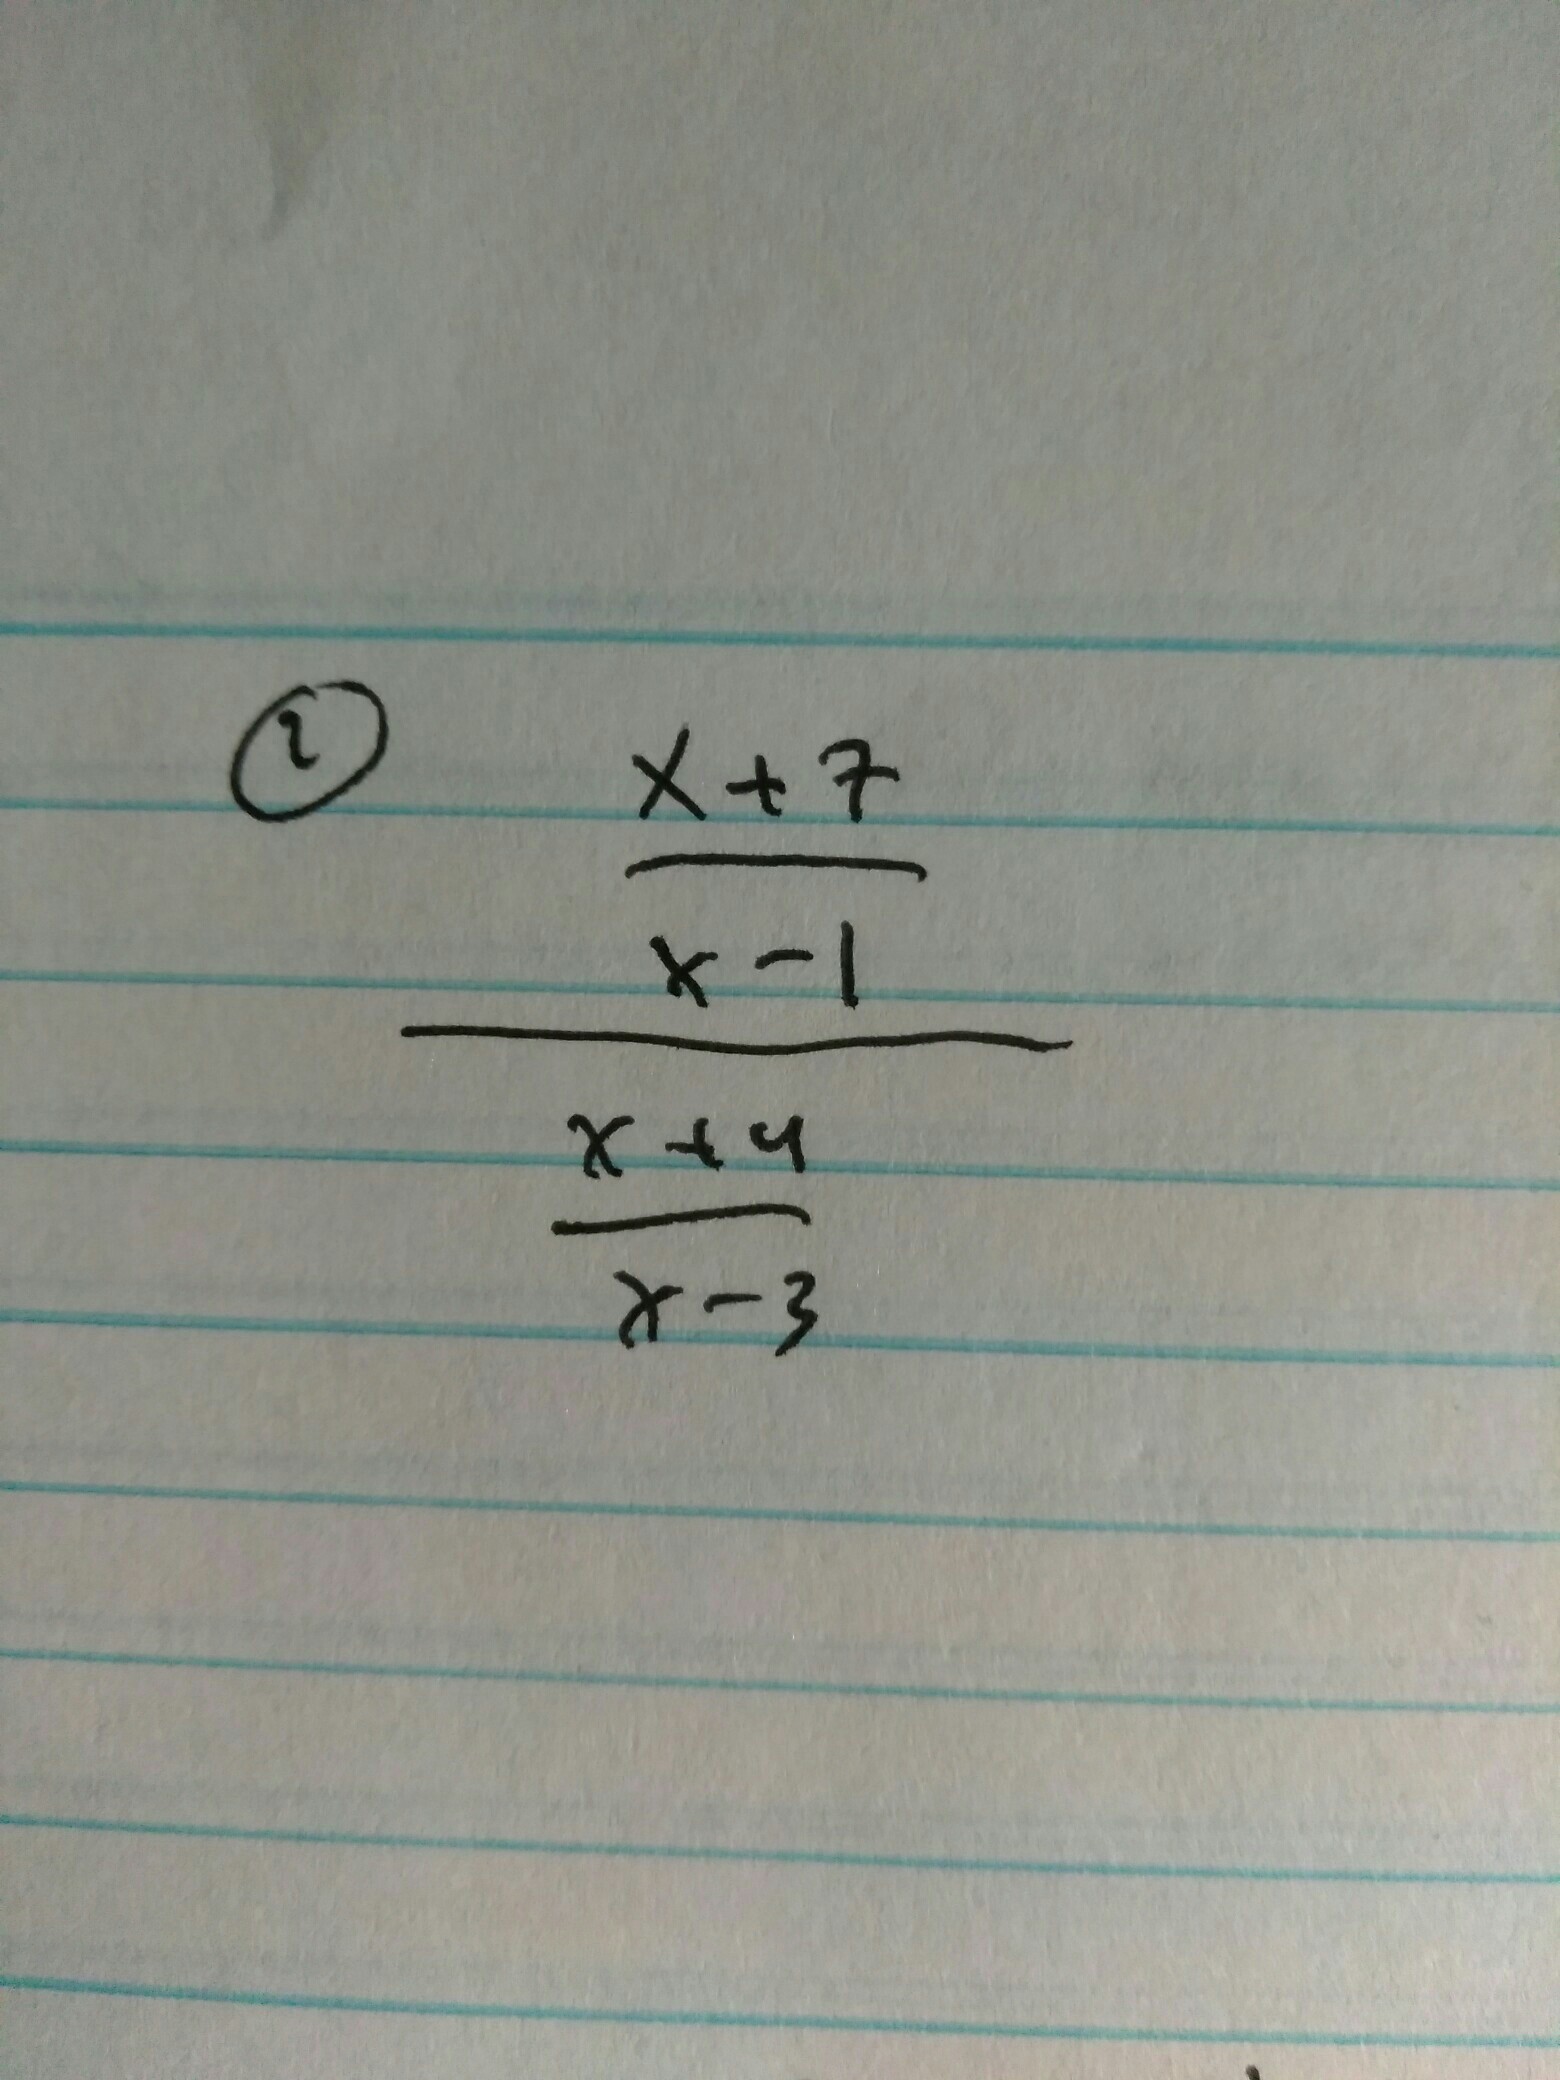 2 x + 7
x - 1
x + 4
x - 3